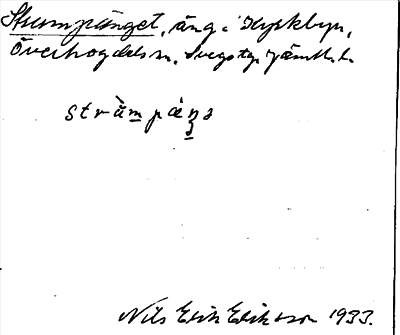 Strumpänget, äng i Kyrkbyn,
Överhogdals sn, Svegs tg. Jämtl. l.
stràmpáŋə
Nils Erik Eriksson 1933.